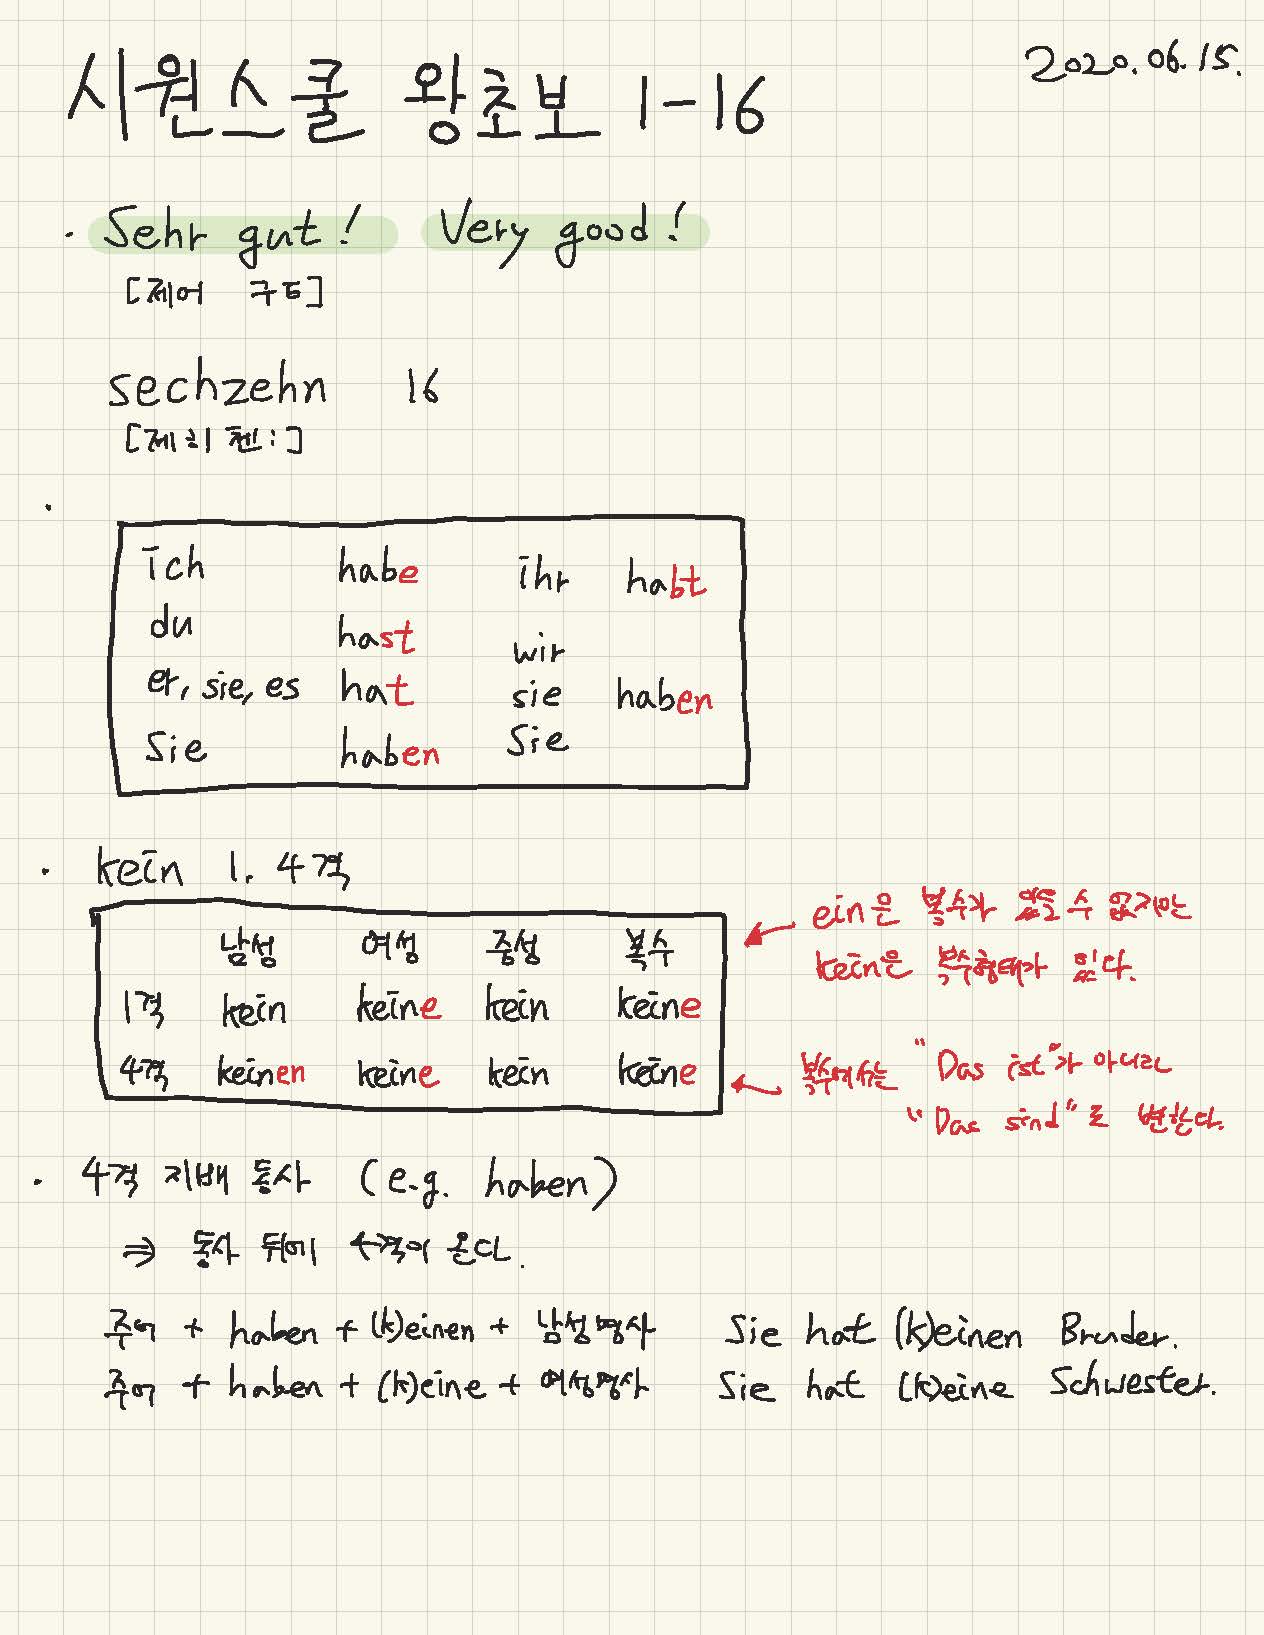 2020.06.15.
시원스쿨 왕초보 1-16
· Sehr gut! Very good!
[제어 구트]
sechzehn 16
[제히첸:]
ich habe ihr habt
du hast wir
er, sie, es hat sie haben
Sie haben Sie
· kein 1. 4격
남성 여성 중성 복수
1격 kein keine kein keine
4격 keinen keine kein keine
ein은 복수가 있을 수 없지만
kein은 복수형태가 있다.
복수에서는 "Das ist"가 아니라
"Das sind"로 변한다.
· 4격 지배 동사 (e.g. haben)
⇒ 동사 뒤에 4격이 온다.
주어 + haben + (k)einen + 남성명사 Sie hat (k)einen Bruder.
주어 + haben + (k)eine + 여성명사 Sie hat (k)eine Schwester.